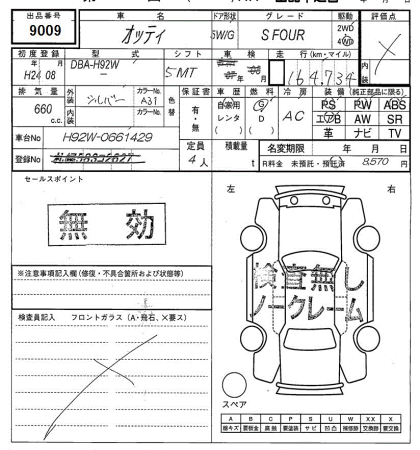 出品番号 車名 ドア形状 グレード 駆動 評価点
9009 オッティ 5W/G S FOUR 2WD 4WD
初度登録 型式 シフト 車検 走行(km・マイル)
年 月 年 月 内装
H24 08 DBA-H92W- 5MT 164,734
排気量 外装 カラーNo. 色替 保証書 車歴 燃料 冷房 装備(純正部品に限る)
660 c.c. シルバー A31 有・無 自家用 レンタ G D AC PS PW ABS
内装 カラーNo. エアB AW SR
革 ナビ TV
車台No H92W-0661429 定員 積載量 名変期限 年 月 日
登録No 4人 t R料金 未預託・預託済 8,570円
セールスポイント 左 右
無効
検査無し
ノークレーム
※注意事項記入欄(修復・不具合箇所および状態等)
検査員記入 フロントガラス(A・飛石、×要ス)
スペア
A B C P S U W XX X
線キズ 要板金 腐蝕 要塗装 サビ 凹凸 補修跡 交換跡 要交換